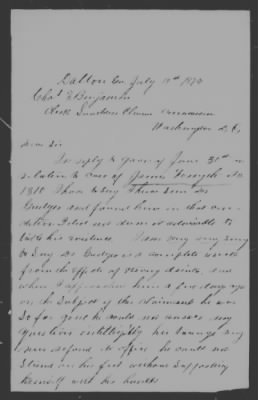 Dalton Ga July 10th 1873
Chas F Benjamin
Clerk Southern Claims Commission
Washington D.C.
Dear Sir
In reply to yours of June 31st in
relation to case of James Forsyth No
1810 I have to say I have seen Dr
and found him in that con-
dition I did not deem it advisable to
take his evidence. I am very very sorry
to say Dr is a complete wreck
from the effects of strong drink. And
when I approached him a few days ago
on the subject of the claimant he was
so far gone he could not answer any
question intelligibly
his office he could not
stand on his feet without supporting
himself with his hands